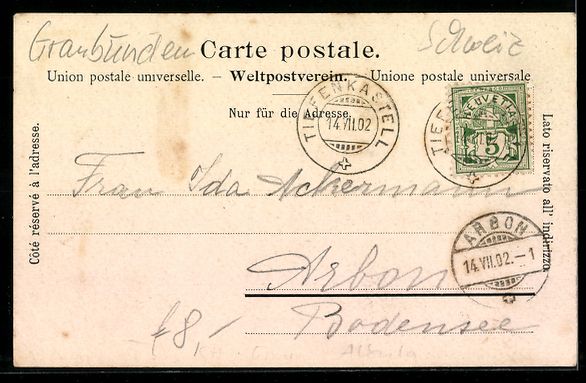 Graubünden Carte postale. Schweiz
Union postale universelle. – Weltpostverein. – Unione postale universale
Nur für die Adresse.
TIEFENKASTELL
14.VII.02
TIEFEN
HELVETIA
5
Côté réservé à l'adresse.
Lato riservato all' indirizzo
Frau Ida Ackermann
ARBON
14.VII.02.–1
Arbon
Bodensee
£8,-